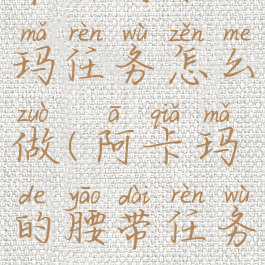 mǎ rèn wù zěn me
玛任务怎么
zuò ā qiǎ mǎ
做(阿卡玛
de yāo dài rèn wù
的腰带任务